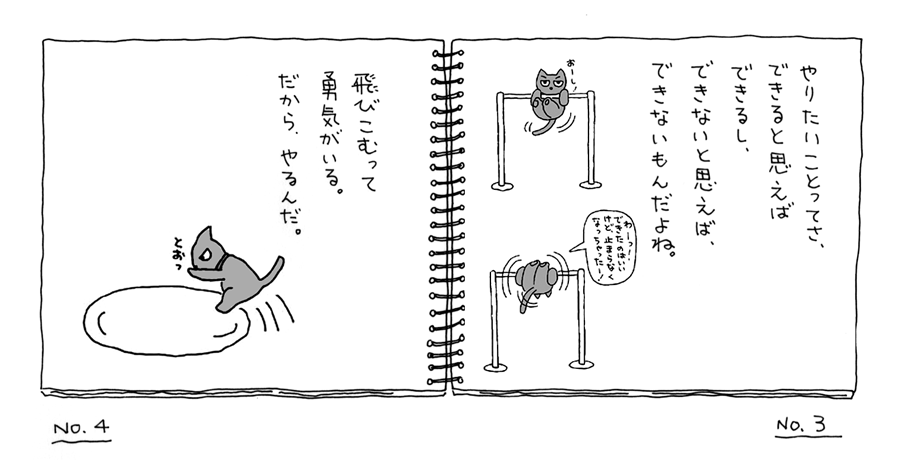 やりたいことってさ、
できると思えば
できるし、
できないと思えば、
できないもんだよね。
おーし
わーっ!
できたのはいい
けど、止まらなく
なっちゃったー!
No. 3
飛びこむって
勇気がいる。
だから、やるんだ。
とおっ
No. 4